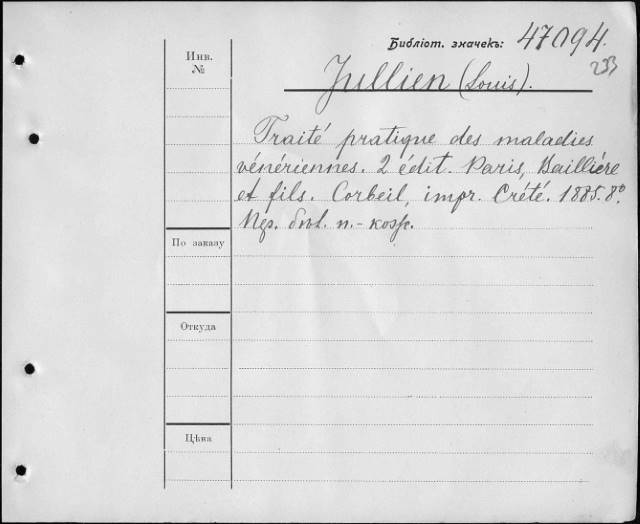 Библіот. значекъ: 47094.
233
Инв.
№
Jullien (Louis).
Traité pratique des maladies
vénériennes. 2 édit. Paris, Baillière
et fils. Corbeil, impr. Crété. 1885. 8º.
п.-кож.
По заказу
Откуда
Цѣна